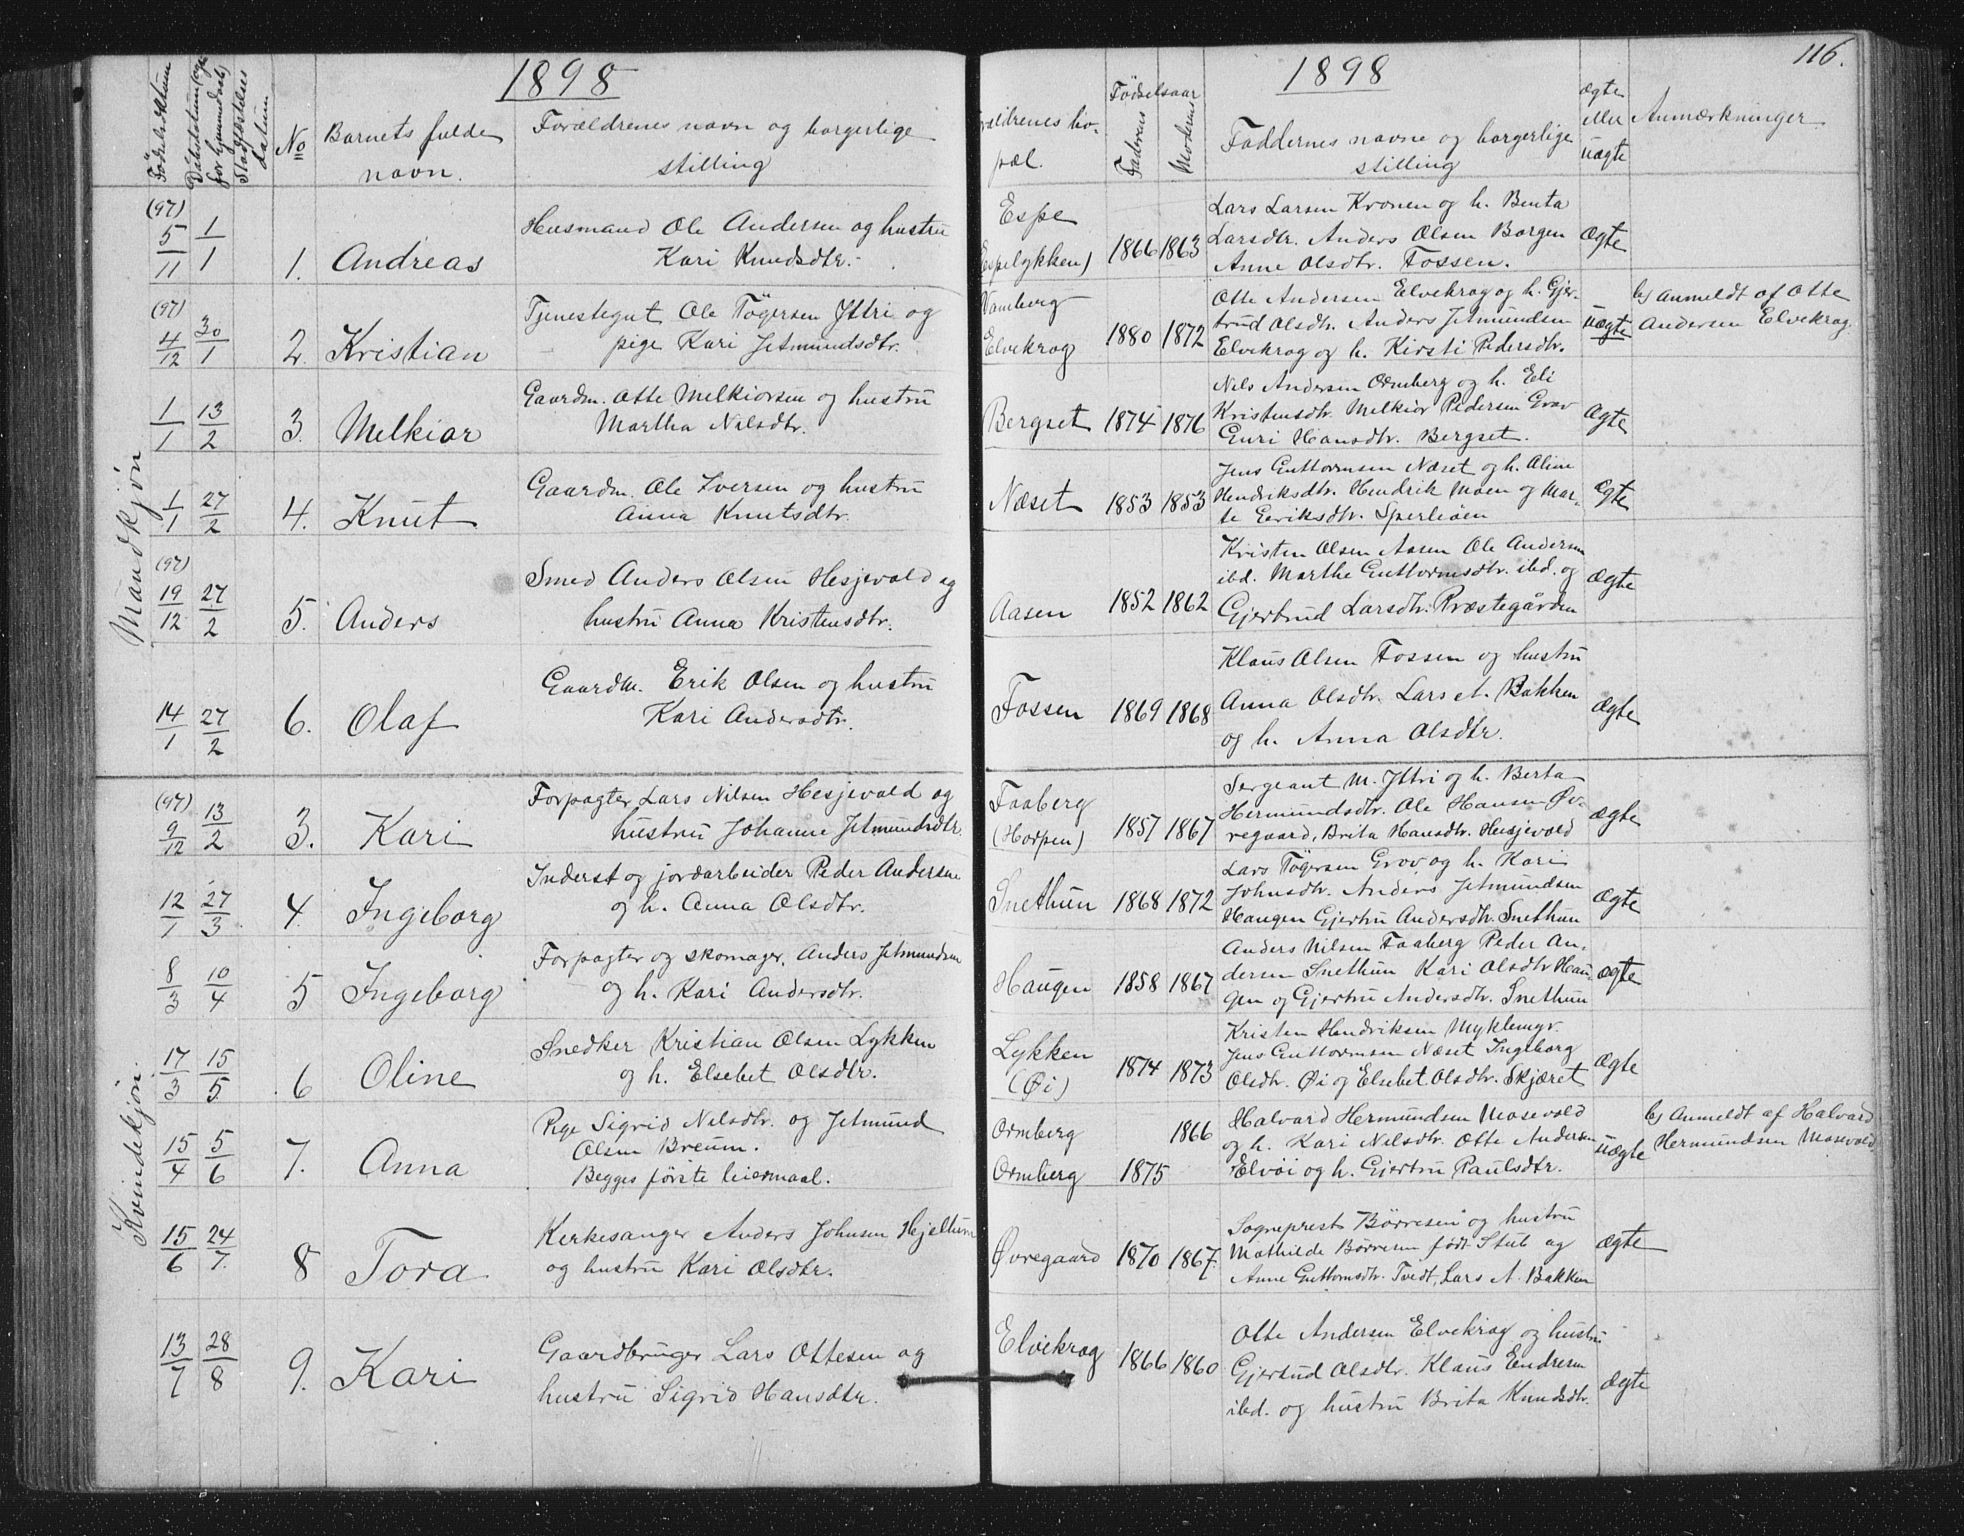 1898
Fødselsdatum
Daabsdatum (og
for hjemmedøbt)
Stadfæstelses
datum
No
Barnets fulde
navn.
Forældrenes navn og borgerlige
stilling
Mandkjøn
(97) 5/11 1/1 1. Andreas
Husmand Ole Andersen og hustru
Kari Knudsdtr.
(97) 4/12 30/1 2. Kristian
Tjenestegut Ole Tøgersen Yttri og
pige Kari Jetmundsdtr.
1/1 13/2 3. Melkior
Gaardm. Otte Melkiorsen og hustru
Martha Nilsdtr.
1/1 27/2 4. Knut
Gaardm. Ole Iversen og hustru
Anna Knutsdtr.
(97) 19/12 27/2 5. Anders
Smed Anders Olsen Hesjevold og
hustru Anna Kristensdtr.
14/1 27/2 6. Olaf
Gaardm. Erik Olsen og hustru
Kari Andersdtr.
Kvindekjøn.
(97) 9/12 13/2 3. Kari
Forpagter Lars Nilsen Hesjevold og
hustru Johanne Jetmundsdtr.
12/1 27/3 4. Ingeborg
Inderst og jordarbeider Peder Andersen
og h. Anna Olsdtr.
8/3 10/4 5 Ingeborg
Forpagter og skomager, Anders Jetmundsen
og h. Kari Andersdtr.
17/3 15/5 6 Oline
Snedker Kristian Olsen Lykken
og h. Elsebet Olsdtr.
15/4 5/6 7. Anna
Pige Sigrid Nilsdtr. og Jetmund
Olsen Breum.
Begges første leiermaal.
15/6 24/7. 8 Tora
Kirkesanger Anders Johnsen Hjeltun
og hustru Kari Olsdtr.
13/7 28/8 9. Kari
Gaardbruger Lars Ottesen og
hustru Sigrid Hansdtr.
1898
116.
Forældrenes bo-
pæl.
Fødselsaar
Faderens
Moderens
Faddernes navne og borgerlige
stilling
ægte
eller
uægte
Anmærkninger
Espe
(Espelykken) 1866 1863
Lars Larsen Kronen og h. Benta
Larsdtr. Anders Olsen Borgen
Anne Olsdtr. Fossen.
Ægte
Vamberg
Elvekrog 1880 1872
Otte Andersen Elvekrog og h. Gjer-
trud Olsdtr. Anders Jetmundsen
Elvekrog og h. Kirsti Pedersdtr.
uægte
b) Anmeldt af Otte
Andersen Elvekrog
Bergset 1874 1876
Nils Andersen Ormberg og h. Eli
Kristensdtr. Melkior Pedersen Grov
Guri Hansdtr. Bergset.
Ægte
Næset 1853 1853
Jens Guttormsen Næset og h. Aline
Hendriksdtr. Hendrik Moen og Mar-
te Eeriksdtr. Sperleøen
Ægte
Aasen 1852 1862
Kristen Olsen Aasen Ole Andersen
ibd. Marthe Guttormsdtr. ibd. og
Gjertrud Larsdtr. Præstegården
Ægte
Fossen 1869 1868
Klaus Olsen Fossen og hustru
Anna Olsdtr. Lars A. Bakken
og h. Anna Olsdtr.
ægte
Faaberg
(Horpen) 1857 1867
Sergeant M. Yttri og h. Berta
Hermundsdtr. Ole Hansen Øv-
regaard, Brita Hansdtr. Hesjevold
ægte
Snethun 1868 1872
Lars Tøgersen Grov og h. Kari
Johnsdtr. Anders Jetmundsen
Haugen Gjertru Andersdtr. Snethun
Ægte
Haugen 1858 1867
Anders Nilsen Faaberg Peder An-
dersen Snethun Kari Olsdtr Hau-
gen og Gjertru Andersdtr. Snethun
ægte
Lykken
(Øi) 1874 1873
Kristen Hendriksen Myklemyr.
Jens Guttormsen Næset Ingeborg
Olsdtr. Øi og Elsebet Olsdtr. Skjæret
Ægte
Ormberg 1866
Ormberg 1875
Halvard Hermundsen Mosevold
og h. Kari Nilsdtr. Otte Andersen
Elvøi og h. Gjertru Paulsdtr.
uægte
b) Anmeldt af Halvard
Hermundsen Mosevold
Øvregaard 1870 1867.
Sogneprest Børresen og hustru
Mathilde Børresen født Stub og
Anne Guttormsdtr. Tvedt, Lars A. Bakken
Ægte
Elvekrog 1866 1860
Otte Andersen Elvekrog og hustru
Gjertrud Olsdtr. Klaus Endresen
ibd. og hustru Brita Knudsdtr.
Ægte